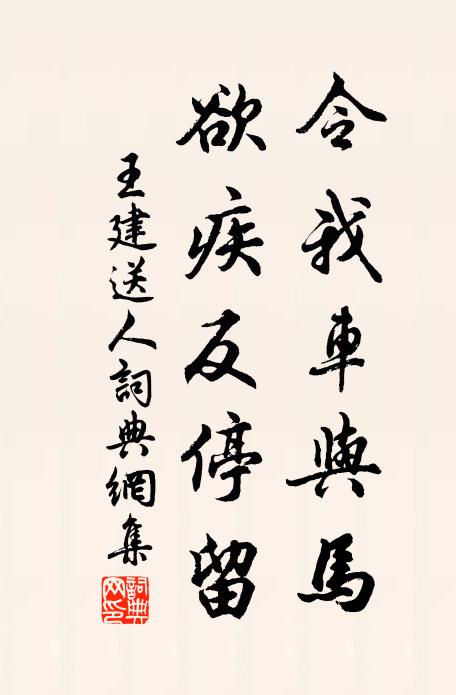 令我車與馬
欲疾反停留
王建送人詞典網集
詞典
网印